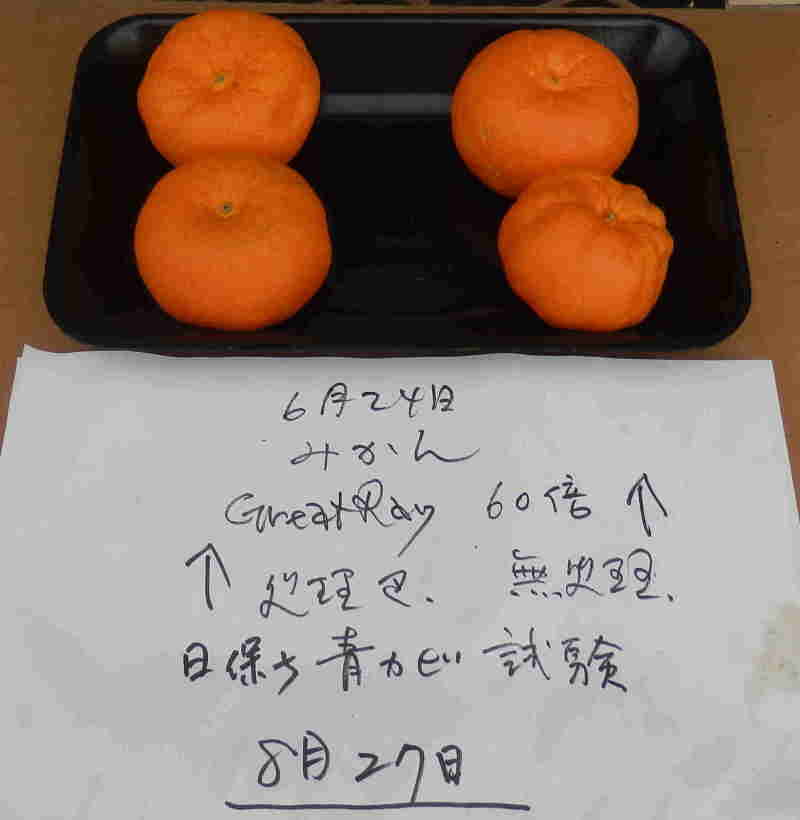 6月24日
みかん
GreatRay 60倍 ↑
↑ 処理已、 無処理、
日保ち青カビ 試験
8月27日